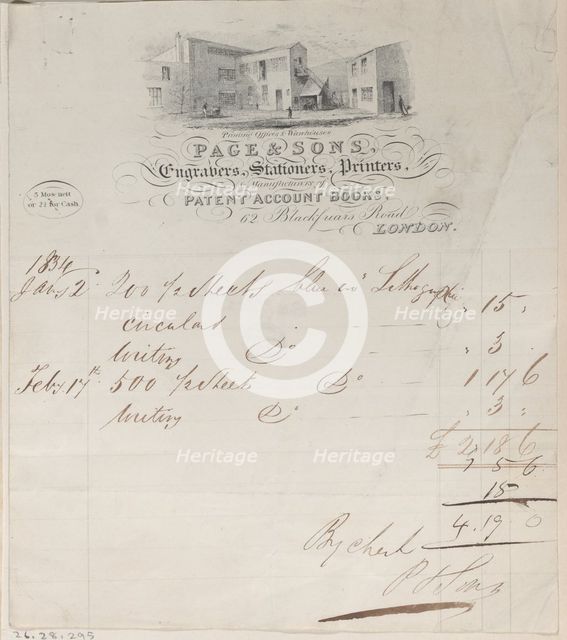 Printing Offices & Warehouses
PAGE & SONS,
Engravers, Stationers, Printers,
Manufacturers of
PATENT ACCOUNT BOOKS,
62 Blackfriars Road
LONDON.
5 Mos. nett
or 2½ for Cash
1834
Jany 2 200 ½ Sheets Lithographic " 15 "
circular
Writing Do " 3 "
Feby 17th 500 ½ Sheets Do 1 17 6
Writing Do " 3 "
£ 2 18 6
5 6
15
4.19 0
By check
P & Sons
26.28.295
Heritage
Heritage
Heritage
Heritage
Heritage
Heritage